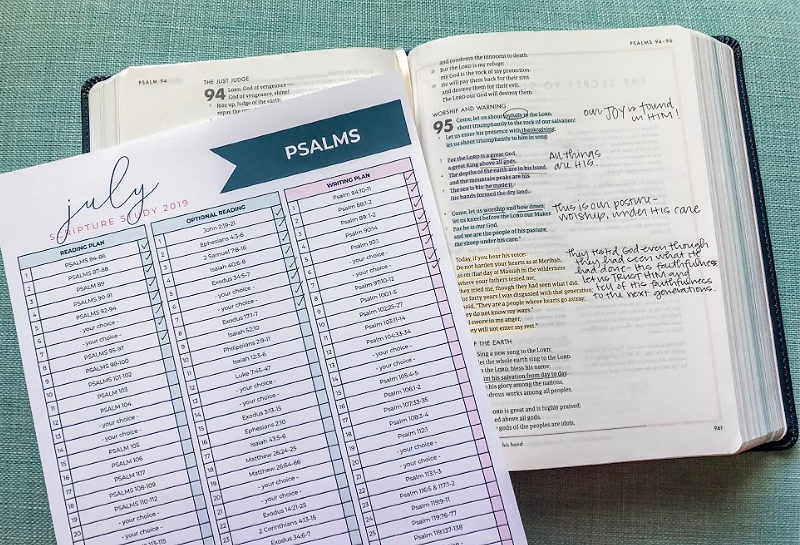 PSALM 94
THE JUST JUDGE
94 LORD, God of vengeance—
God of vengeance, shine!
Rise up, Judge of the earth;
july
SCRIPTURE STUDY 2019
PSALMS
READING PLAN
PSALMS 84-86
PSALMS 87-88
PSALM 89
PSALMS 90-91
PSALMS 92-94
- your choice -
- your choice -
PSALMS 95-97
PSALMS 98-100
PSALMS 101-102
PSALM 103
PSALM 104
- your choice -
- your choice -
PSALM 105
PSALM 106
PSALM 107
PSALMS 108-109
PSALMS 110-112
- your choice -
- your choice -
OPTIONAL READING
John 2:19-21
Ephesians 4:3-6
2 Samuel 7:8-16
Isaiah 40:6-8
Exodus 34:5-7
- your choice -
- your choice -
Exodus 17:1-7
Isaiah 52:10
Philippians 2:9-11
Isaiah 12:3-6
Luke 7:45-47
- your choice -
- your choice -
Exodus 3:13-15
Ephesians 2:10
Isaiah 43:5-6
Matthew 26:24-25
Matthew 26:64-66
- your choice -
- your choice -
Exodus 14:21-25
2 Corinthians 4:13-15
Exodus 34:6-7
WRITING PLAN
Psalm 84:10-11
Psalm 88:1-2
Psalm 89:1-2
Psalm 90:14
Psalm 93:1
- your choice -
- your choice -
Psalm 97:10-12
Psalm 100:1-5
Psalm 102:25-27
Psalm 103:11-14
Psalm 104:33-34
- your choice -
- your choice -
Psalm 105:4-5
Psalm 106:1-2
Psalm 107:33-35
Psalm 108:3-4
Psalm 112:1
- your choice -
- your choice -
Psalm 113:1-3
Psalm 116:5 & 117:1-2
Psalm 119:9-11
Psalm 119:76-77
Psalm 119:137-138
PSALMS 94–96
and condemn the innocent to death.
But the LORD is my refuge;
my God is the rock of my protection.
He will pay them back for their sins
and destroy them for their evil.
The LORD our God will destroy them.
WORSHIP AND WARNING
95 Come, let us shout joyfully to the LORD,
shout triumphantly to the rock of our salvation!
Let us enter his presence with thanksgiving;
let us shout triumphantly to him in song.
For the LORD is a great God,
a great King above all gods.
The depths of the earth are in his hand,
and the mountain peaks are his.
The sea is his; he made it.
His hands formed the dry land.
Come, let us worship and bow down;
let us kneel before the LORD our Maker.
For he is our God,
and we are the people of his pasture,
the sheep under his care.
Today, if you hear his voice:
Do not harden your hearts as at Meribah,
as on that day at Massah in the wilderness
where your fathers tested me;
they tried me, though they had seen what I did.
For forty years I was disgusted with that generation;
I said, "They are a people whose hearts go astray;
they do not know my ways."
I swore in my anger,
"They will not enter my rest."
OF THE EARTH
Sing a new song to the LORD;
let the whole earth sing to the LORD.
to the LORD, bless his name;
his salvation from day to day.
his glory among the nations,
wondrous works among all peoples.
LORD is great and is highly praised;
above all gods.
gods of the peoples are idols,
his hand
961
our JOY is found
in HIM!
All things
are HIS.
This is our posture-
worship, under HIS care
They tested God-even though
they had seen what He
had done. His faithfulness
let us TRUST HIM and
tell of His faithfulness
to the next generations.